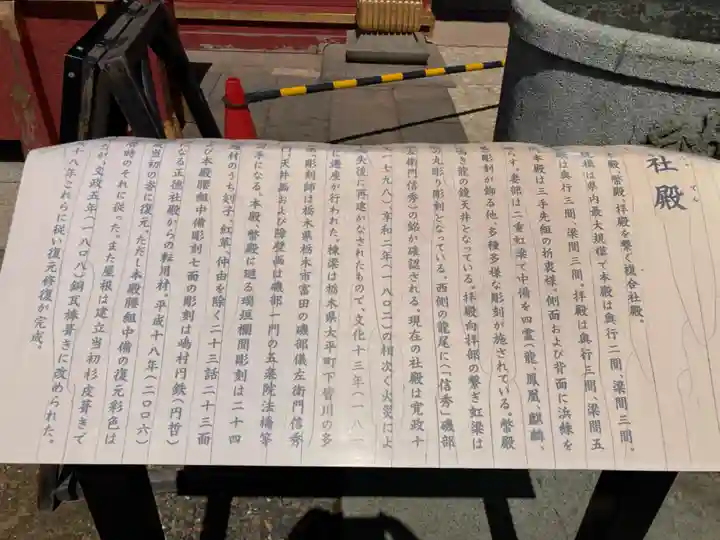 社殿
でん
殿、幣殿、拝殿を繋ぐ複合社殿。
規模は県内最大規模で本殿は奥行二間、梁間三間。
殿は奥行三間、梁間三間。拝殿は奥行三間、梁間五
本殿は三手先組の折衷様。側面および背面に浜縁を
らす。妻部は二重虹梁で中備を四霊(龍、鳳凰、麒麟、
彫刻が飾る他、多種多様な彫刻が施されている。幣殿
鳴き龍の鏡天井となっている。拝殿向拝部の繋ぎ虹梁は
の丸彫り彫刻となっている。西側の龍尾に〈「信秀」磯部
左衛門信秀〉の銘が確認される。現在の社殿は寛政十
(一七九八)、享和二年(一八〇二)の相次ぐ火災によ
失後に再建がなされたもので、文化十三年(一八一
に遷座が行われた。棟梁は栃木県太平町下皆川の多
、彫刻師は栃木県栃木市富田の磯部儀左衛門信秀
門、天井画および障壁画は磯部一門の五楽院法橋等
の手になる。本殿、幣殿に廻る瑞垣欄間彫刻は二十四
題材のうち剡子、紅革、仲由を除く二十三話二十三面
び本殿腰組中備彫刻七面の彫刻は嶋村円鉄(円哲)
なる正徳社殿からの転用材。平成十八年(二〇〇六)
立当初の姿に復元。ただし本殿腰組中備の復元彩色は
当時のそれに従った。また屋根は建立当初杉皮葺きで
たが、文政五年(一八〇八)銅瓦棒葺きに改められた。
十八年これらに従い復元修復が完成。